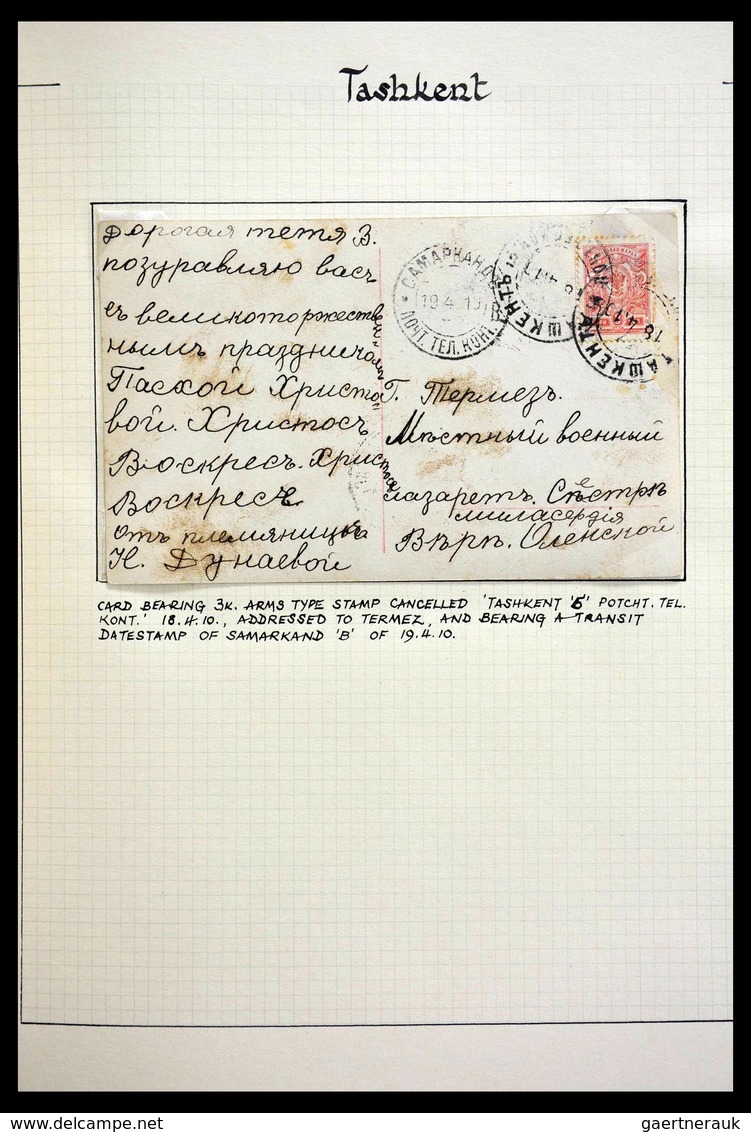 Tashkent
Дорогая тетя В.
позуравляю васъ
съ великоторжестве
нымъ праздникомъ
Пасхой Христо
вой. Христосъ
Воскресъ. Христосъ
Воскресъ
отъ племяницы
Н. Дунаевой
САМАРКАНДЪ
19 4 10
ПОЧТ. ТЕЛ. КОНТ
ТАШКЕНТЪ
18 4 10
ТАШКЕНТЪ
18 4 10
Г. Термезъ.
Мѣстный военный
лазаретъ. Сестрѣ
миласердія
Вѣрѣ. Оленской
CARD BEARING 3K. ARMS TYPE STAMP CANCELLED 'TASHKENT 'Б' POTCHT. TEL.
KONT.' 18.4.10., ADDRESSED TO TERMEZ, AND BEARING A TRANSIT
DATESTAMP OF SAMARKAND 'B' OF 19.4.10.
delcampe.net
gaertnerauk